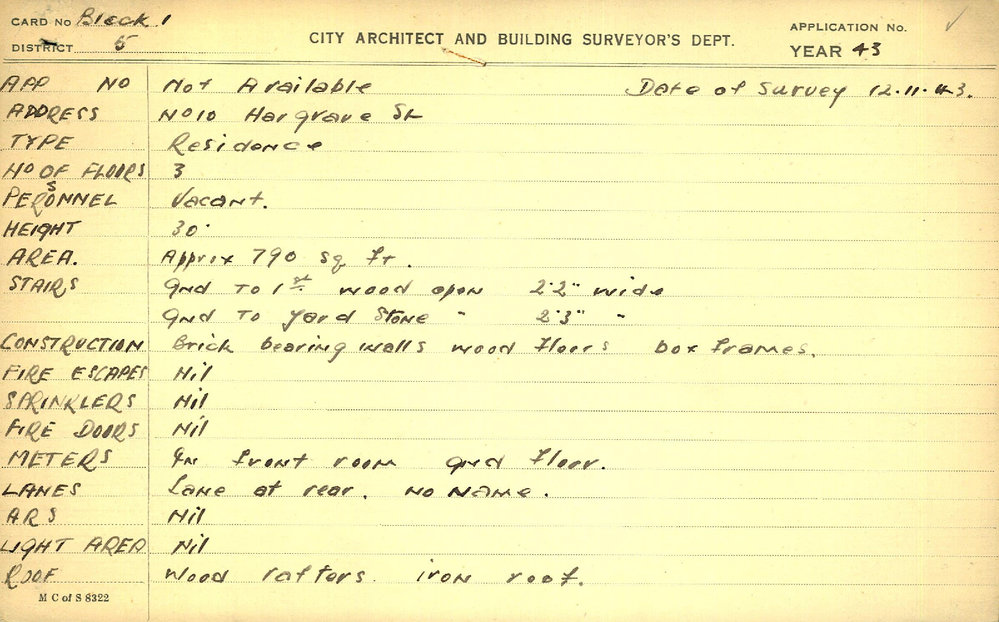 CARD No Block 1
APPLICATION No.
DISTRICT 5
CITY ARCHITECT AND BUILDING SURVEYOR'S DEPT.
YEAR 43
APP NO Not Available Date of Survey 12.11.43.
ADDRESS No 10 Hargrave St
TYPE Residence
No OF FLOORS 3
PERSONNEL Vacant.
HEIGHT 30'
AREA. Approx 790 sq ft.
STAIRS Gnd To 1st wood open 2'2" wide
Gnd To Yard Stone " 2'3" "
CONSTRUCTION Brick bearing walls wood floors box frames.
FIRE ESCAPES Nil
SPRINKLERS Nil
FIRE DOORS Nil
METERS In front room gnd floor.
LANES Lane at rear. No Name.
ARS Nil
LIGHT AREA Nil
ROOF Wood rafters iron roof.
M C of S 8322